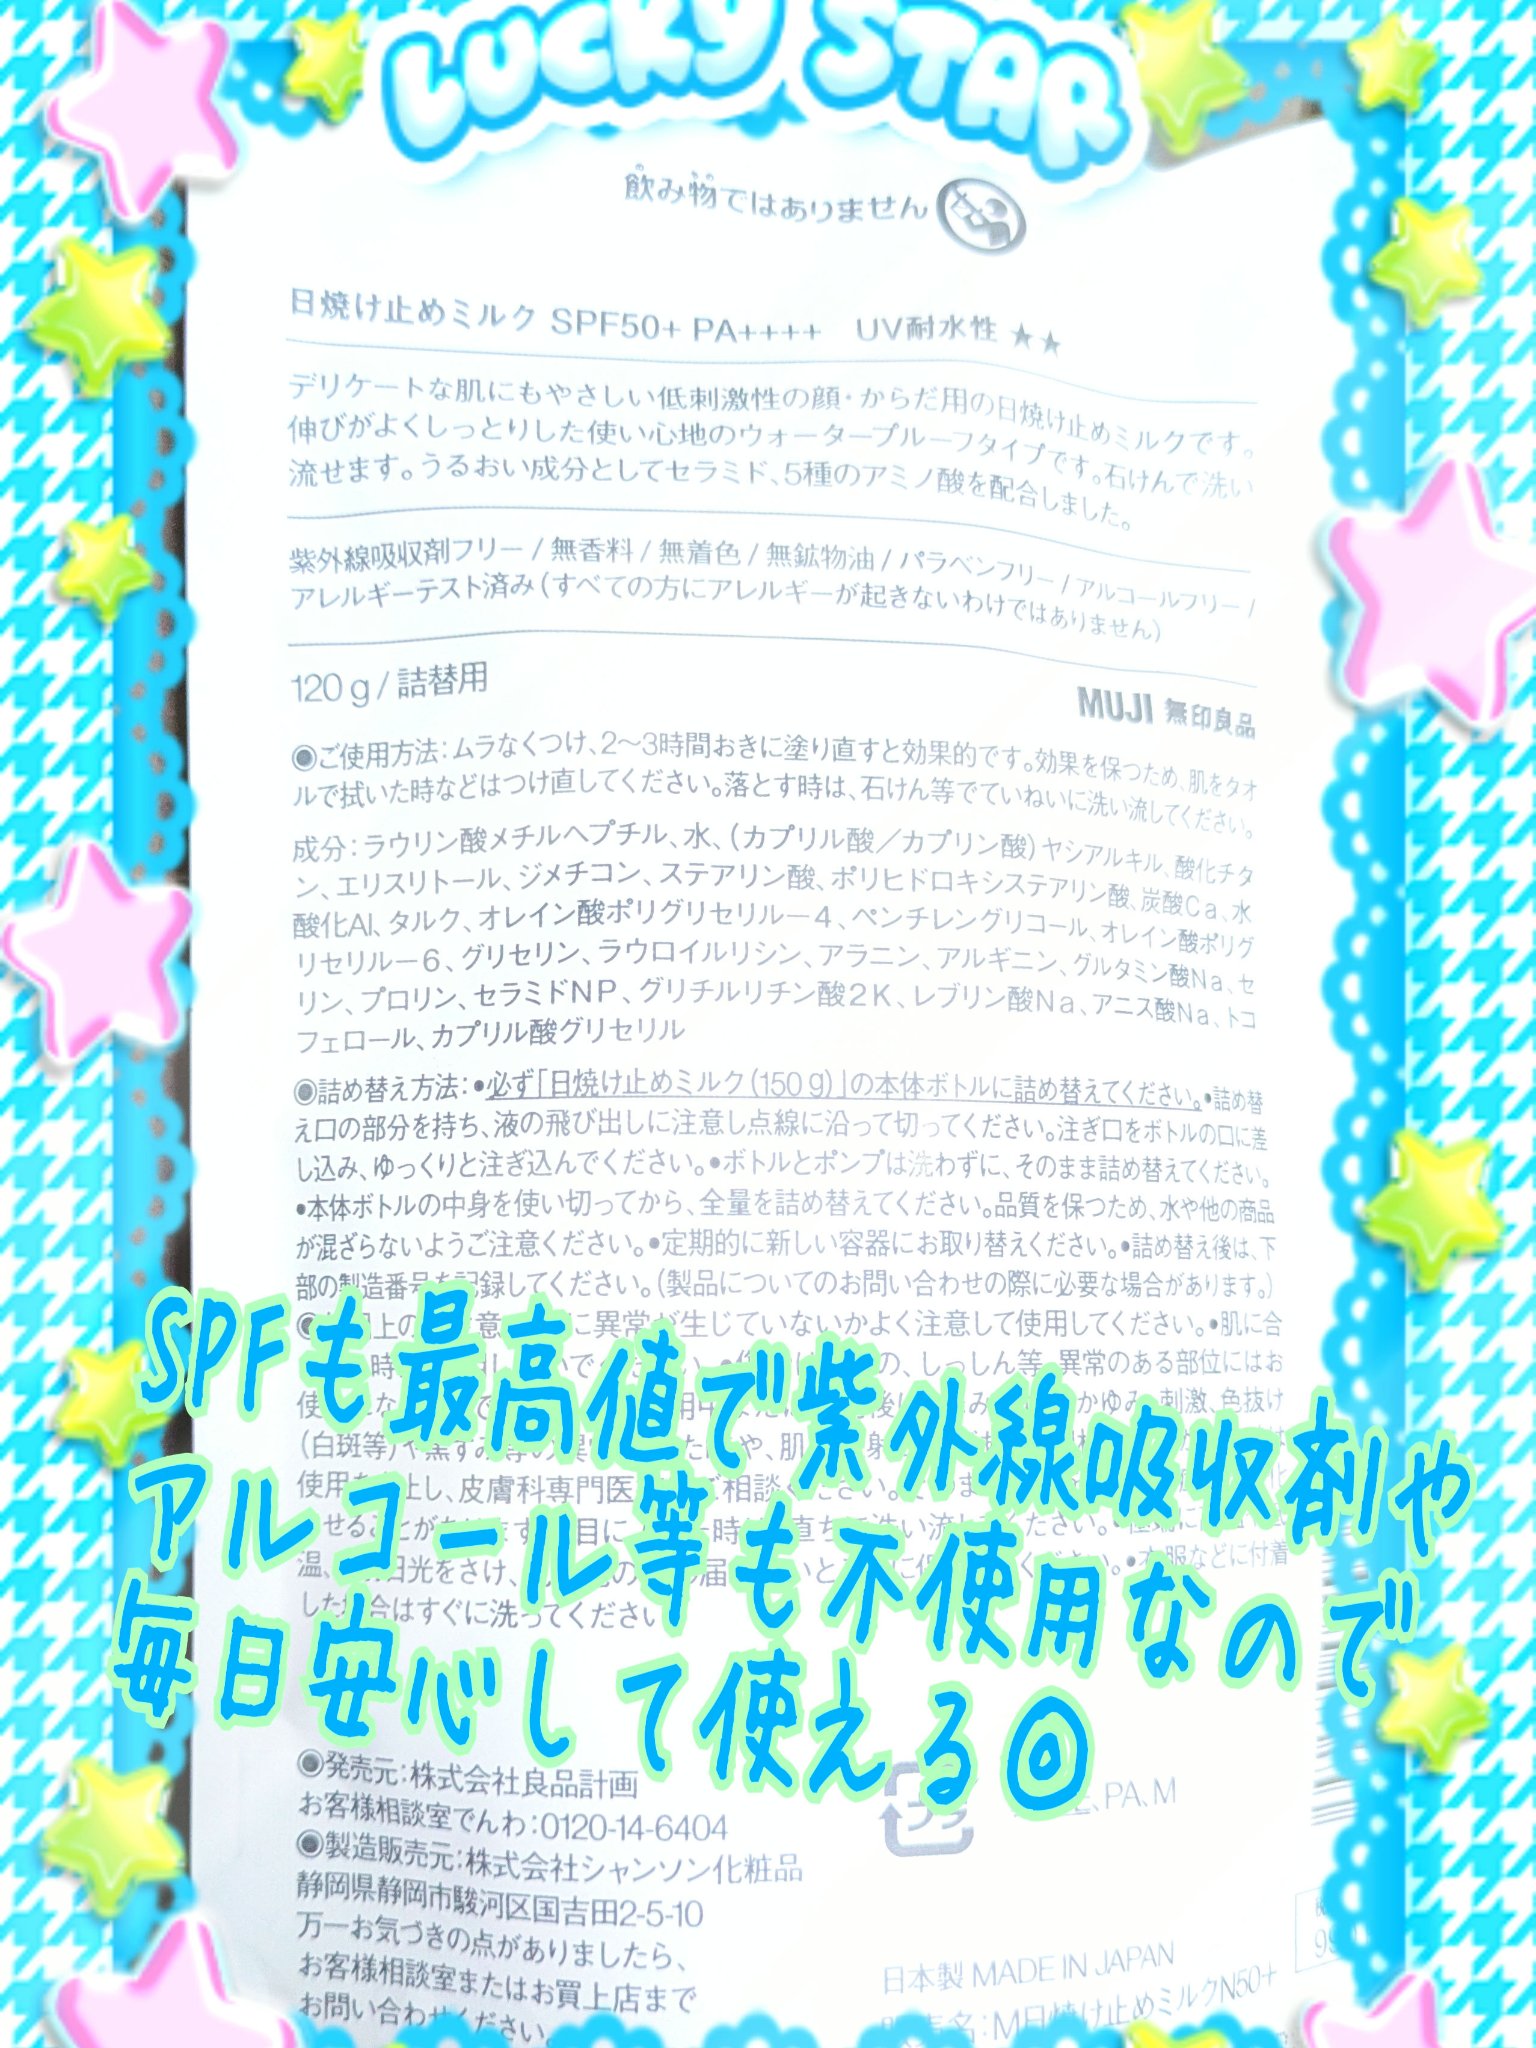 LUCKY STAR
飲み物ではありません
日焼け止めミルク SPF50+ PA++++ UV耐水性 ★★
デリケートな肌にもやさしい低刺激性の顔・からだ用の日焼け止めミルクです。
伸びがよくしっとりした使い心地のウォータープルーフタイプです。石けんで洗い
流せます。うるおい成分としてセラミド、5種のアミノ酸を配合しました。
紫外線吸収剤フリー / 無香料 / 無着色 / 無鉱物油 / パラベンフリー / アルコールフリー /
アレルギーテスト済み(すべての方にアレルギーが起きないわけではありません)
120g / 詰替用
MUJI 無印良品
◉ご使用方法:ムラなくつけ、2〜3時間おきに塗り直すと効果的です。効果を保つため、肌をタオ
ルで拭いた時などはつけ直してください。落とす時は、石けん等でていねいに洗い流してください。
成分:ラウリン酸メチルヘプチル、水、(カプリル酸/カプリン酸)ヤシアルキル、酸化チタ
ン、エリスリトール、ジメチコン、ステアリン酸、ポリヒドロキシステアリン酸、炭酸Ca、水
酸化Al、タルク、オレイン酸ポリグリセリル-4、ペンチレングリコール、オレイン酸ポリグ
リセリル-6、グリセリン、ラウロイルリシン、アラニン、アルギニン、グルタミン酸Na、セ
リン、プロリン、セラミドNP、グリチルリチン酸2K、レブリン酸Na、アニス酸Na、トコ
フェロール、カプリル酸グリセリル
◉詰め替え方法:•必ず「日焼け止めミルク(150g)」の本体ボトルに詰め替えてください。•詰め替
え口の部分を持ち、液の飛び出しに注意し点線に沿って切ってください。注ぎ口をボトルの口に差
し込み、ゆっくりと注ぎ込んでください。•ボトルとポンプは洗わずに、そのまま詰め替えてください。
•本体ボトルの中身を使い切ってから、全量を詰め替えてください。品質を保つため、水や他の商品
が混ざらないようご注意ください。•定期的に新しい容器にお取り替えください。•詰め替え後は、下
部の製造番号を記録してください。(製品についてのお問い合わせの際に必要な場合があります。)
に異常が生じていないかよく注意して使用してください。•肌に合
しっしん等、異常のある部位にはお
かゆみ、刺激、色抜け
(白斑等)や黒ずみ等の
し、皮膚科専門医
ご相談
日光をさけ、
服などに付着
した場合はすぐに洗ってください
SPFも最高値で紫外線吸収剤や
アルコール等も不使用なので
毎日安心して使える◎
◉発売元:株式会社良品計画
お客様相談室でんわ:0120-14-6404
◉製造販売元:株式会社シャンソン化粧品
静岡県静岡市駿河区国吉田2-5-10
万一お気づきの点がありましたら、
お客様相談室またはお買上店まで
お問い合わせください。
プラ
、PA、M
日本製 MADE IN JAPAN
名:M日焼け止めミルクN50+